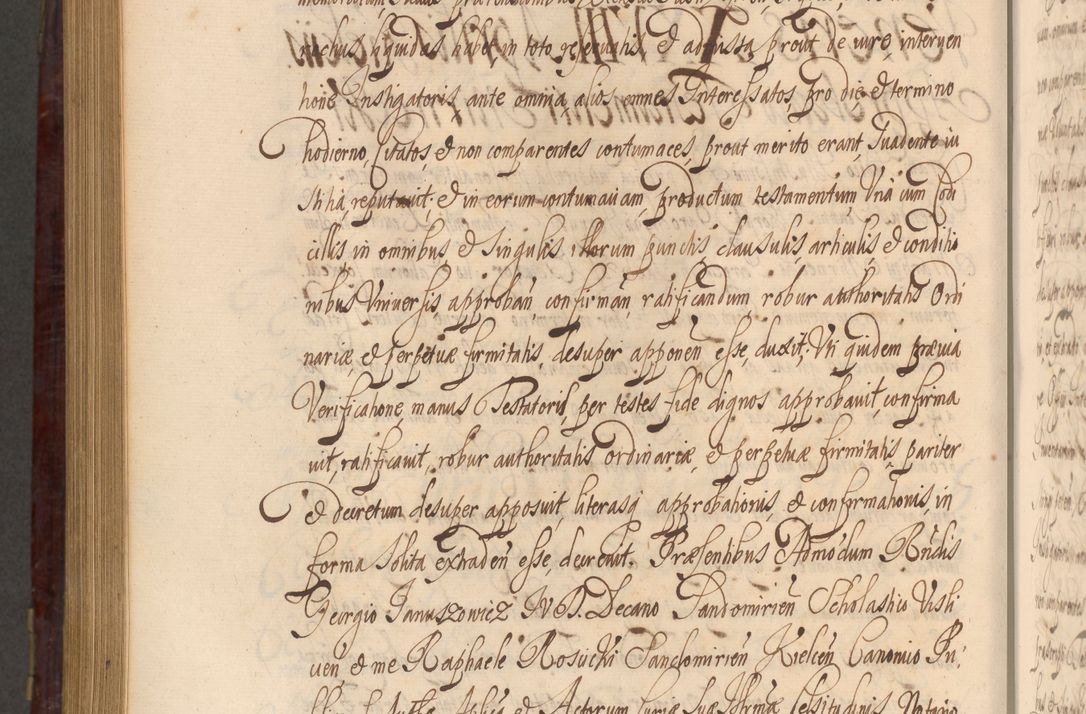 nachus, siquidas habet, in toto generalis, & adjuista, prout de iure, interuen
hoñe Instigatoris ante omnia, alios omnes Interessatos, pro die & termino
hodierno, Citatos, & non comparentes contumaces, prout merito erant, Suadente iu
stitia, reputauit; & in eorum contumaciam, productum testamentum Vna cum Codi
cillis in omnibus, & Singulis illorum punctis, clausulis, articulis, & conditio
nibus Vniuersis approbań, confirmań, ratificandum, robur authoritatis Ordi
nariæ & perpetuæ firmitatis desuper apponeń esse duxit. Vti quidem præuia
Verificatione, manus Testatoris, per testes fide dignos approbauit, confirma
uit, ratificauit, robur authoritatis Ordinariæ, & perpetuæ firmitatis pariter
& decretum desuper apposuit, literasq approbationis, & confirmationis, in
forma Solita extradeń esse, decreuit. Præsentibus Admodum Rñdis
Georgio Januszowicz IV.D. Decano Sandomirień Scholastico Visli
ceń, & me Raphaele Rosucki Sandomirień Kielceń Canonico Pu,
blico Autho Aplica & Actorum Curiæ Suæ Celsitudinis Notario